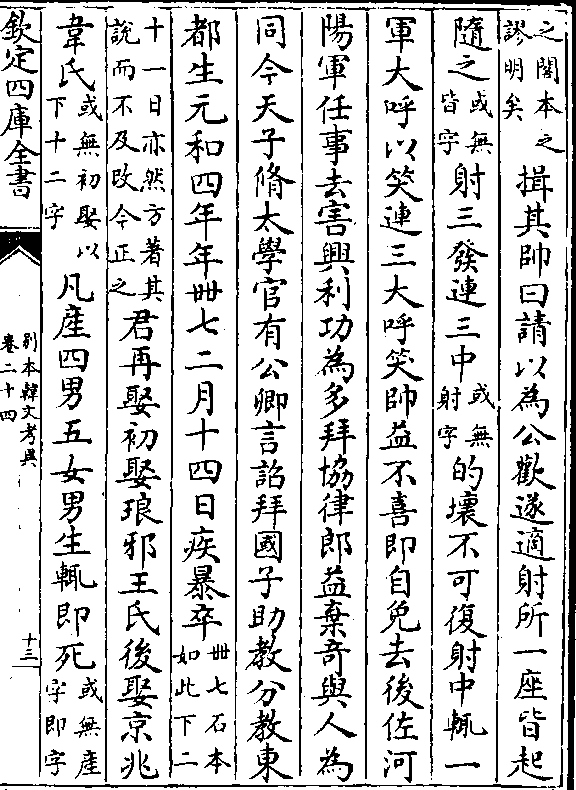 之閣本之謬明矣揖其帥曰請以為公歡遂適射所一座皆起
隨之或無皆字射三發連三中或無射字的壞不可復射中輒一
軍大呼以笑連三大呼笑帥益不喜即自免去後佐河
陽軍任事去害興利功為多拜協律郎益棄奇與人為
同今天子脩太學官有公卿言詔拜國子助教分教東
都生元和四年年卌七二月十四日疾暴卒卌七石本如此下二
十一日亦然方著其說而不及改今正之君再娶初娶琅邪王氏後娶京兆
韋氏或無初娶以下十二字凡產四男五女男生輒即死或無產字即字
欽定四庫全書
別本韓文考異
卷二十四
十三